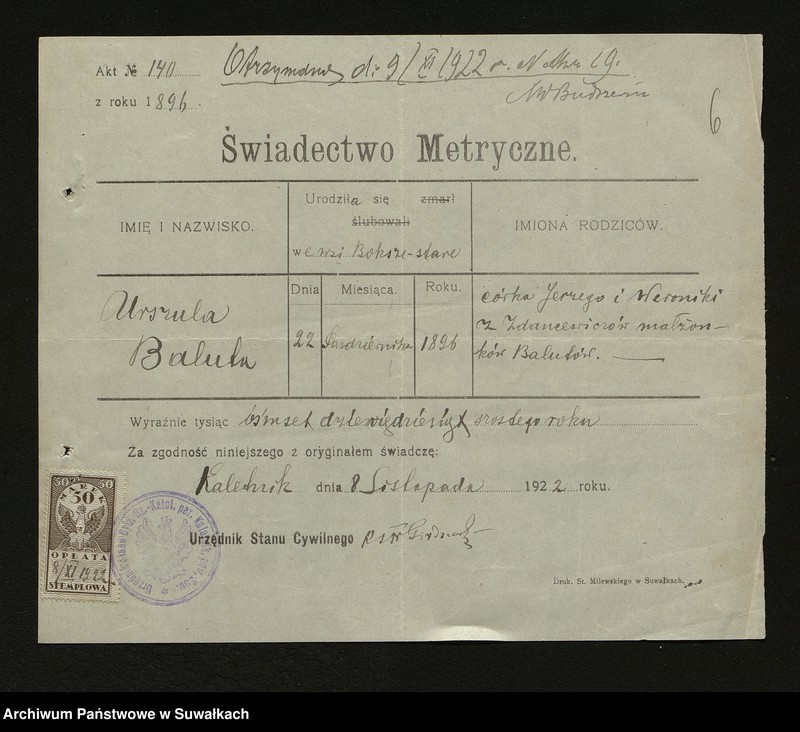 Akt № 140
z roku 1896.
Otrzymane d: 9/XI 1922 r. N
6
Świadectwo Metryczne.
IMIĘ I NAZWISKO.
Urodziła się zmarł
ślubowali
we wsi Boksze-stare
IMIONA RODZICÓW.
Dnia Miesiąca. Roku.
Urszula
Baluta
22 Października 1896
córka Jerzego i Weroniki
z Zdancewiczów małżon-
ków Balutów.
Wyraźnie tysiąc ośmset dziewięćdziesiąt szostego roku
Za zgodność niniejszego z oryginałem świadczę:
Kaletnik dnia 8 Listopada 1922 roku.
Urzędnik Stanu Cywilnego
50 50
MAREK
50
OPŁATA
8/XI 1922
STEMPLOWA
Druk. St. Milewskiego w Suwałkach.
Archiwum Państwowe w Suwałkach